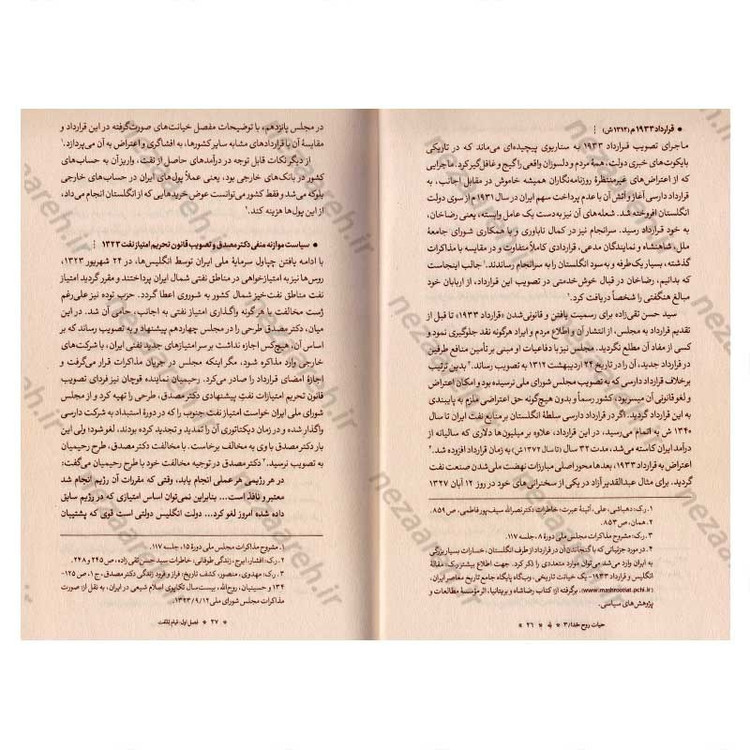 • قرارداد ۱۹۳۳ م (۱۳۱۲ ش)
ماجرای تصویب قرارداد ۱۹۳۳ به سناریوی پیچیده‌ای می‌ماند که در تاریکی
بایکوت‌های خبری دولت، همهٔ مردم و دلسوزان واقعی را گیج و غافل‌گیر کرد. ماجرایی
که از اعتراض‌های غیرمنتظرهٔ روزنامه‌نگاران همیشه خاموش در مقابل اجانب، به
قرارداد دارسی آغاز و آتش آن با عدم پرداخت سهم ایران در سال ۱۹۳۱م از سوی دولت
انگلستان افروخته شد. شعله‌های آن نیز به‌دست یک عامل وابسته، یعنی رضاخان،
به خود قرارداد رسید. سرانجام نیز در کمال ناباوری و با همکاری شورای جامعهٔ
ملل، شاهنشاه و نمایندگان مدعی، قراردادی کاملاً متفاوت و در مقایسه با مذاکرات
گذشته، بسیار یک‌طرفه و به سود انگلستان را به سرانجام رساندند.۱ جالب اینجاست
که بدانیم، رضاخان در قبال خوش‌خدمتی در تصویب این قرارداد، از اربابان خود
مبالغ هنگفتی را شخصاً دریافت کرد.۲
سید حسن تقی‌زاده برای رسمیت یافتن و قانونی‌شدن «قرارداد ۱۹۳۳» تا قبل از
تقدیم قرارداد به مجلس، از انتشار آن و اطلاع مردم و ایراد هرگونه نقد جلوگیری نمود و
کسی از مفاد آن مطلع نگردید. مجلس نیز با دفاعیات او مبنی بر تأمین منافع طرفین
قرارداد جدید، آن را در تاریخ ۲۴ اردیبهشت ۱۳۱۲ به تصویب رساند.۳ بدین ترتیب
برخلاف قرارداد دارسی که به تصویب مجلس شورای ملی نرسیده بود و امکان اعتراض
و لغو قانونی آن میسر بود، کشور رسماً و بدون هیچ‌گونه حق اعتراضی ملزم به پایبندی
به این قرارداد گردید. اگر در قرارداد دارسی سلطهٔ انگلستان بر منابع نفت ایران تا سال
۱۳۴۰ ش به اتمام می‌رسید، در این قرارداد، علاوه بر میلیون‌ها دلاری که سالیانه از
درآمد ایران کاسته می‌شد، مدت ۳۲ سال (تا سال ۱۳۷۲ ش) به زمان قرارداد افزوده شد.۴
اعتراض به قرارداد ۱۹۳۳، بعدها محور اصلی مبارزات نهضت ملی شدن صنعت نفت
گردید. برای مثال عبدالقدیر آزاد در یکی از سخنرانی های خود در روز ۱۲ آبان ۱۳۲۷
۱. رک: دهباشی، علی، آئینهٔ عبرت: خاطرات دکتر نصرالله سیف‌پور فاطمی، ص ۸۵۹.
۲. همان، ص ۸۵۳.
۳. مشروح مذاکرات مجلس ملی دورهٔ ۸، جلسه ۱۱۷.
۴. در مورد جزئیاتی که با گنجاندن آن در قرارداد از طرف انگلستان، خسارات بسیار بزرگی
به ایران وارد می‌شد می‌توان موارد متعددی را ذکر کرد. جهت اطلاع بیشتر رک: مقالهٔ
انگلیس و قرارداد ۱۹۳۳- یک خیانت تاریخی، وب‌گاه پایگاه جامع تاریخ معاصر ایران،
برگرفته از: کتاب رضاشاه و بریتانیا، اثر مؤسسهٔ مطالعات و
پژوهش‌های سیاسی.
حیات روح خدا/۳ * ۲۶ *
در مجلس پانزدهم، با توضیحات مفصل خیانت‌های صورت‌گرفته در این قرارداد و
مقایسهٔ آن با قراردادهای مشابه سایر کشورها، به افشاگری و اعتراض به آن می‌پردازد.۱
از دیگر نکات قابل توجه در درآمدهای حاصل از نفت، واریز آن به حساب‌های
کشور در بانک‌های خارجی بود، یعنی عملاً پول‌های ایران در حساب‌های خارجی
بلوکه می‌شد و فقط کشور می‌توانست عوض خریدهایی که از انگلستان انجام می‌داد،
از این پول‌ها هزینه کند.۲
• سیاست موازنه منفی دکتر مصدق و تصویب قانون تحریم امتیاز نفت ۱۳۲۳
با ادامه یافتن چپاول سرمایهٔ ملی ایران توسط انگلیس‌ها، در ۲۴ شهریور ۱۳۲۳،
روس‌ها نیز به امتیازخواهی در مناطق نفتی شمال ایران پرداختند و مقرر گردید امتیاز
نفت مناطق نفت‌خیز شمال کشور به شوروی اعطا گردد. حزب توده نیز علی‌رغم
ژست مخالفت با هرگونه واگذاری امتیاز نفتی به اجانب، حامی آن شد. در این
میان، دکتر مصدق طرحی را در مجلس چهاردهم پیشنهاد و به تصویب رساند که بر
اساس آن، هیچ‌کس اجازه نداشت بر سر امتیازهای جدید نفتی ایران، با شرکت‌های
خارجی وارد مذاکره شود، مگر اینکه مجلس در جریان مذاکرات قرار می‌گرفت و
اجازهٔ امضای قرارداد را صادر می‌کرد. رحیمیان نماینده قوچان نیز فردای تصویب
قانون تحریم امتیازات نفت پیشنهادی دکتر مصدق، طرحی را تهیه کرد و از مجلس
شورای ملی ایران خواست امتیاز نفت جنوب را که در دورهٔ استبداد به شرکت دارسی
واگذار شده و در زمان دیکتاتوری آن را تمدید و تجدید کرده بودند، لغو شود؛ ولی این
بار دکتر مصدق با وی به مخالفت برخاست. با مخالفت دکتر مصدق، طرح رحیمیان
به تصویب نرسید.۳ دکتر مصدق در توجیه مخالفت خود با طرح رحیمیان می‌گفت:
در هر رژیمی هر عملی انجام یابد، وقتی که مقررات آن رژیم انجام شد
معتبر و نافذ است... بنابراین نمی‌توان اساس امتیازی که در رژیم سابق
داده شده امروز لغو کرد... دولت انگلیس دولتی است قوی که پشتیبان
۱. مشروح مذاکرات مجلس ملی دورهٔ ۱۵، جلسه ۱۱۷.
۲. رک: افشار، ایرج، زندگی طوفانی، خاطرات سید حسن تقی زاده، ص ۲۴۵ و ۲۴۸.
۳. رک: مهدوی، منصور، کشف تاریخ، فراز و فرود زندگی دکتر مصدق، ج ۱، ص ۱۲۵-
۱۳۴ و حسینیان، روح‌الله، بیست سال تکاپوی اسلام شیعی در ایران، به نقل از: صورت
مذاکرات مجلس شورای ملی ۱۳۲۳/۹/۱۲.
* ۲۷ * فصل اول: قیام
nezaareh.ir